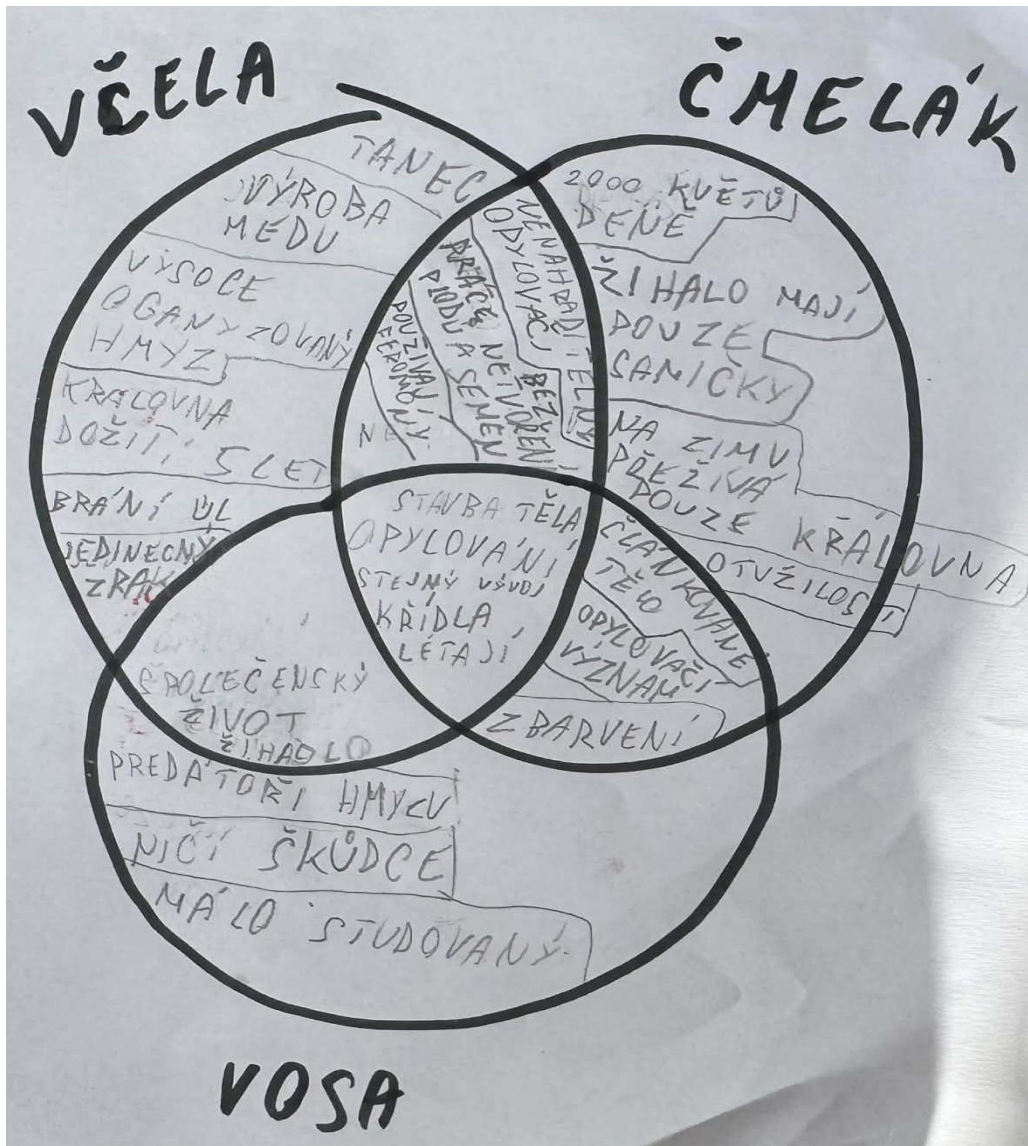 VČELA
ČMELÁK
TANEC
VÝROBA
MEDU
VYSOCE
OGANYZOVANÝ
HMYZ
KRALOVNA
DOŽITÍ 5 LET
BRÁNÍ ÚL
JEDINECNÝ
ZRAK
NENAHRADITELNÝ
OPYLOVAČI
BEZ
PRÁCE NETVOŘENÍ
PLODU A SEMEN
POUŽÍVAJÍ
FEROMONY
NE
2000 KVĚTŮ
DENĚ
ŽIHALO MAJÍ
POUZE
SAMIČKY
NA ZIMU
PŘEŽÍVÁ
POUZE KŘÁLOVNA
OTUŽILOST
STAVBA TĚLA
OPYLOVÁNÍ
STEJNÝ VÝVOJ
KŘÍDLA
LÉTAJÍ
ČLÁNKOVANÉ
TĚLO
OPYLOVAČÍ
VÝZNAM
ZBARVENÍ
SPOLEČENSKÝ
ŽIVOT
ŽIHADLO
PREDÁTOŘI HMYZU
NIČÍ ŠKŮDCE
MÁLO STUDOVANÝ
VOSA